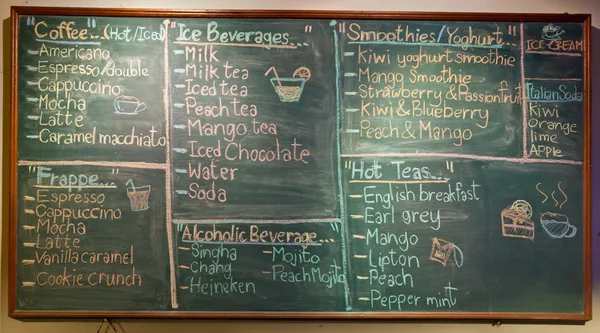 "Coffee..." (Hot/Iced)
Americano
Espresso/double
Cappuccino
Mocha
Latte
Caramel macchiato
"Frappe..."
Espresso
Cappuccino
Mocha
Latte
Vanilla caramel
Cookie crunch
"Ice Beverages..."
Milk
Milk tea
Iced tea
Peach tea
Mango tea
Iced Chocolate
Water
Soda
"Alcoholic Beverage..."
Singha
Chang
Heineken
Mojito
Peach Mojito
"Smoothies/Yoghurt..."
Kiwi yoghurt smoothie
Mango Smoothie
Strawberry & Passionfruit
Kiwi & Blueberry
Peach & Mango
ICE-CREAM
Italian Soda
Kiwi
Orange
lime
Apple
"Hot Teas..."
English breakfast
Earl grey
Mango
Lipton
Peach
Pepper mint